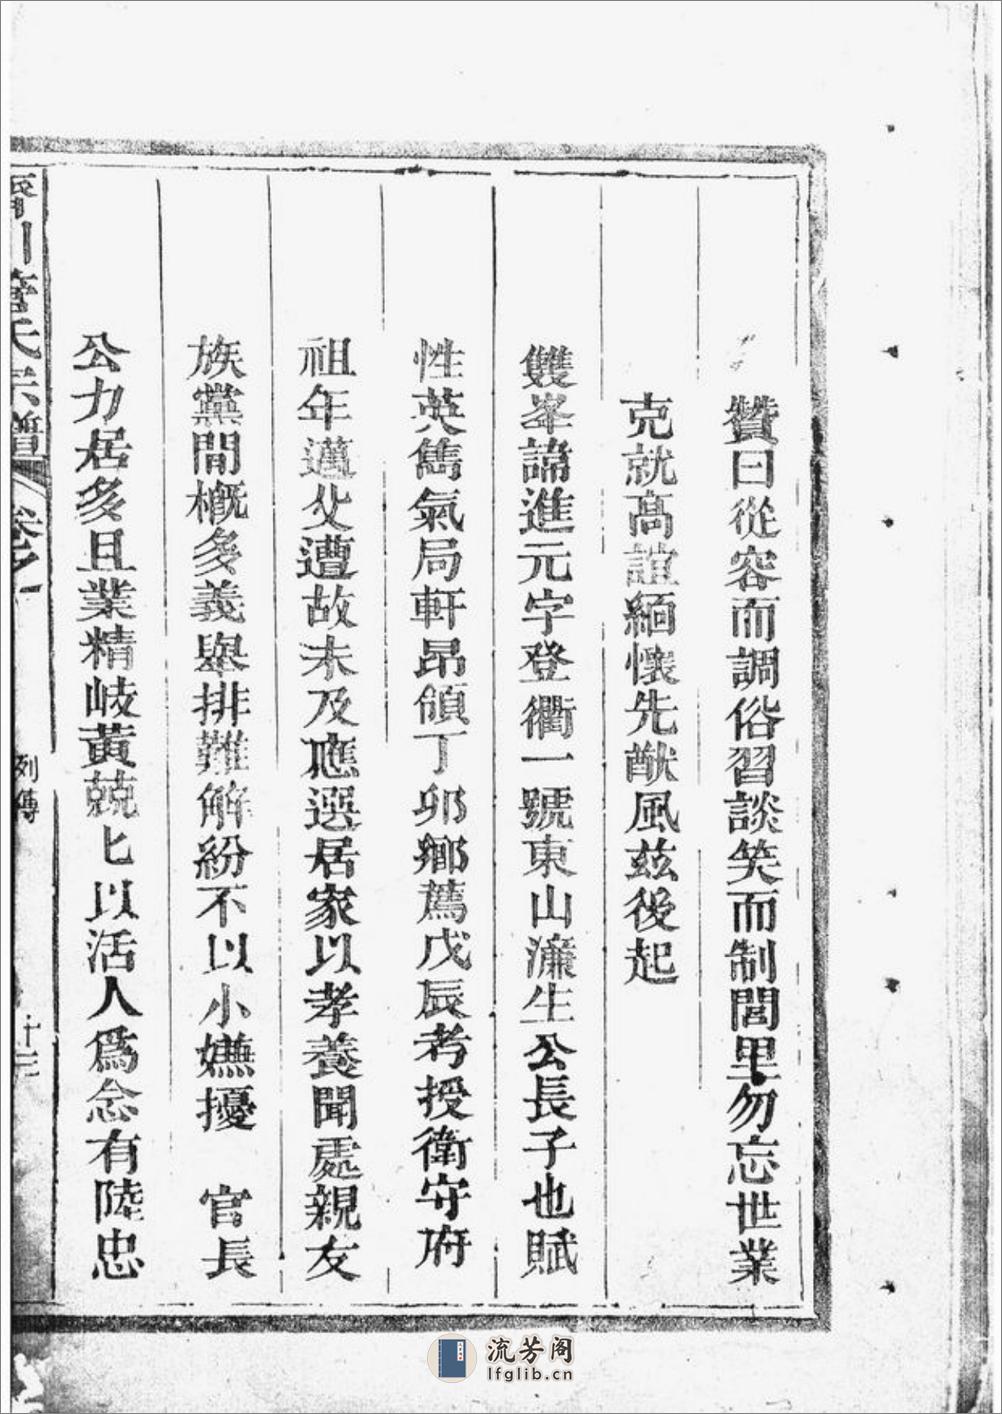 贊曰從容而調俗習談笑而制閭里勿忘世業
克就高誼緬懷先猷風茲後起
雙峯諱進元字登衢一號東山濂生公長子也賦
性英雋氣局軒昂領丁卯鄉薦戊辰考授衛守府
祖年邁父遭故未及應選居家以孝養聞處親友
族黨閒槪多義舉排難解紛不以小嫌擾 官長
公力居多且業精岐黃兢匕以活人爲念有陸忠
川管氏宗譜 卷之一 列傳 十三
流芳阁
lfglib.cn